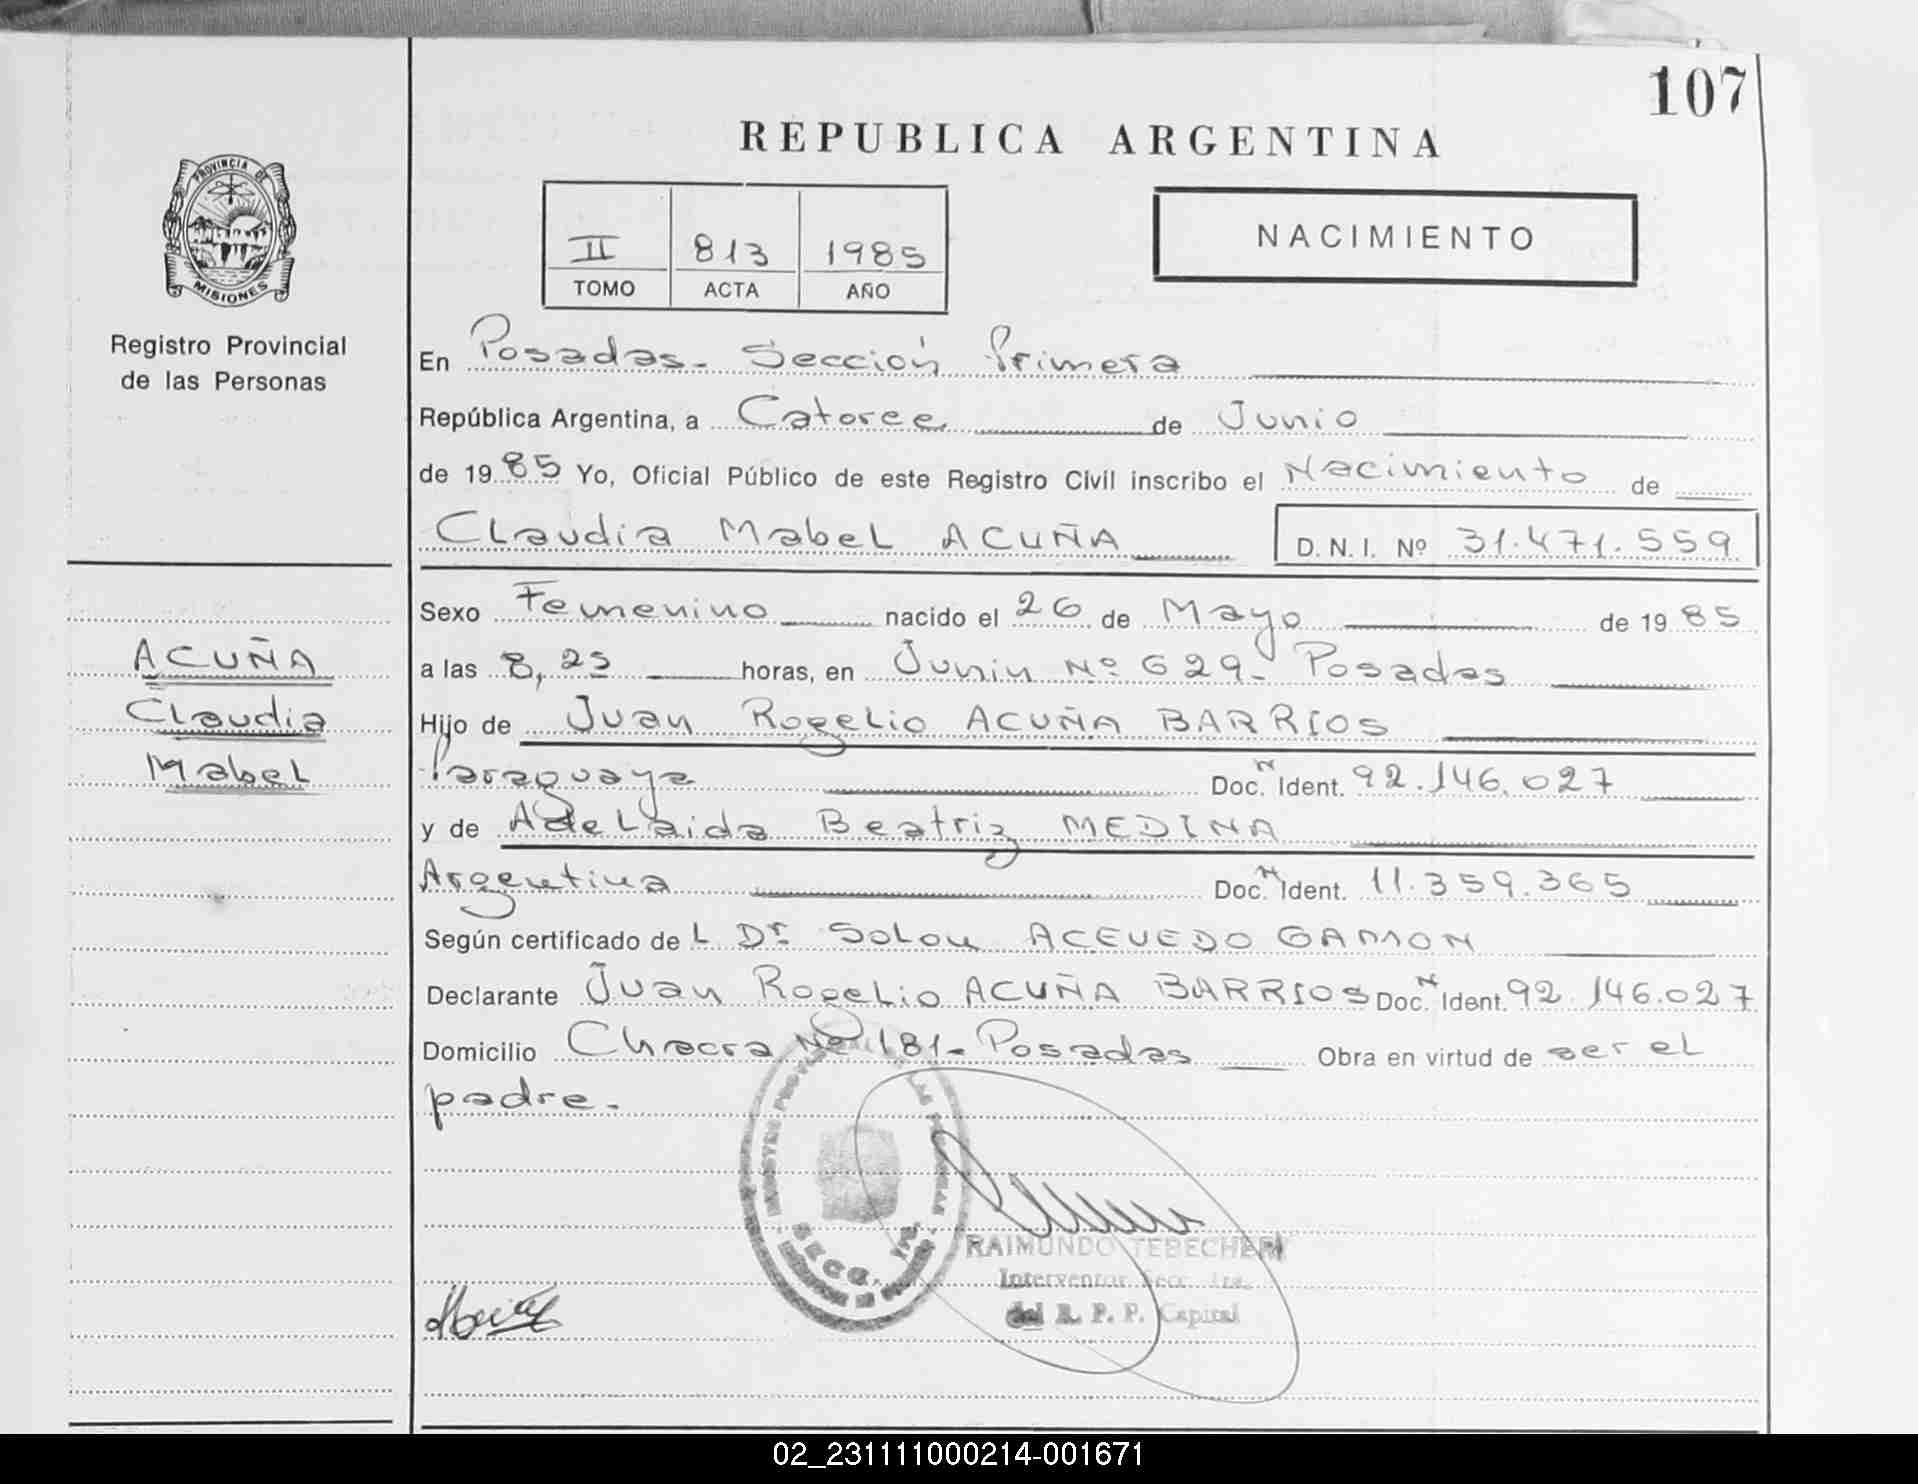 107
REPUBLICA ARGENTINA
PROVINCIA DE
MISIONES
Registro Provincial
de las Personas
II 813 1985
TOMO ACTA AÑO
NACIMIENTO
En Posadas - Sección Primera
República Argentina, a Catorce de Junio
de 1985 Yo, Oficial Público de este Registro Civil inscribo el Nacimiento de
Claudia Mabel ACUÑA D.N.I. Nº 31.471.559
Sexo Femenino nacido el 26 de Mayo de 1985
a las 8,25 horas, en Junin Nº 629 - Posadas
Hijo de Juan Rogelio ACUÑA BARRIOS
Paraguaya Doc. N Ident. 92.146.027
y de Adelaida Beatriz MEDINA
Argentina Doc. N Ident. 11.359.365
Según certificado de L Dr. Solon ACEVEDO GAMON
Declarante Juan Rogelio ACUÑA BARRIOS Doc. N Ident. 92.146.027
Domicilio Chacra Nº 181 - Posadas Obra en virtud de ser el
padre.
ACUÑA
Claudia
Mabel
SECC. 1RA.
RAIMUNDO TEBECHERI
Interventor Secc. 1ra.
del R. P. P. Capital
02_231111000214-001671